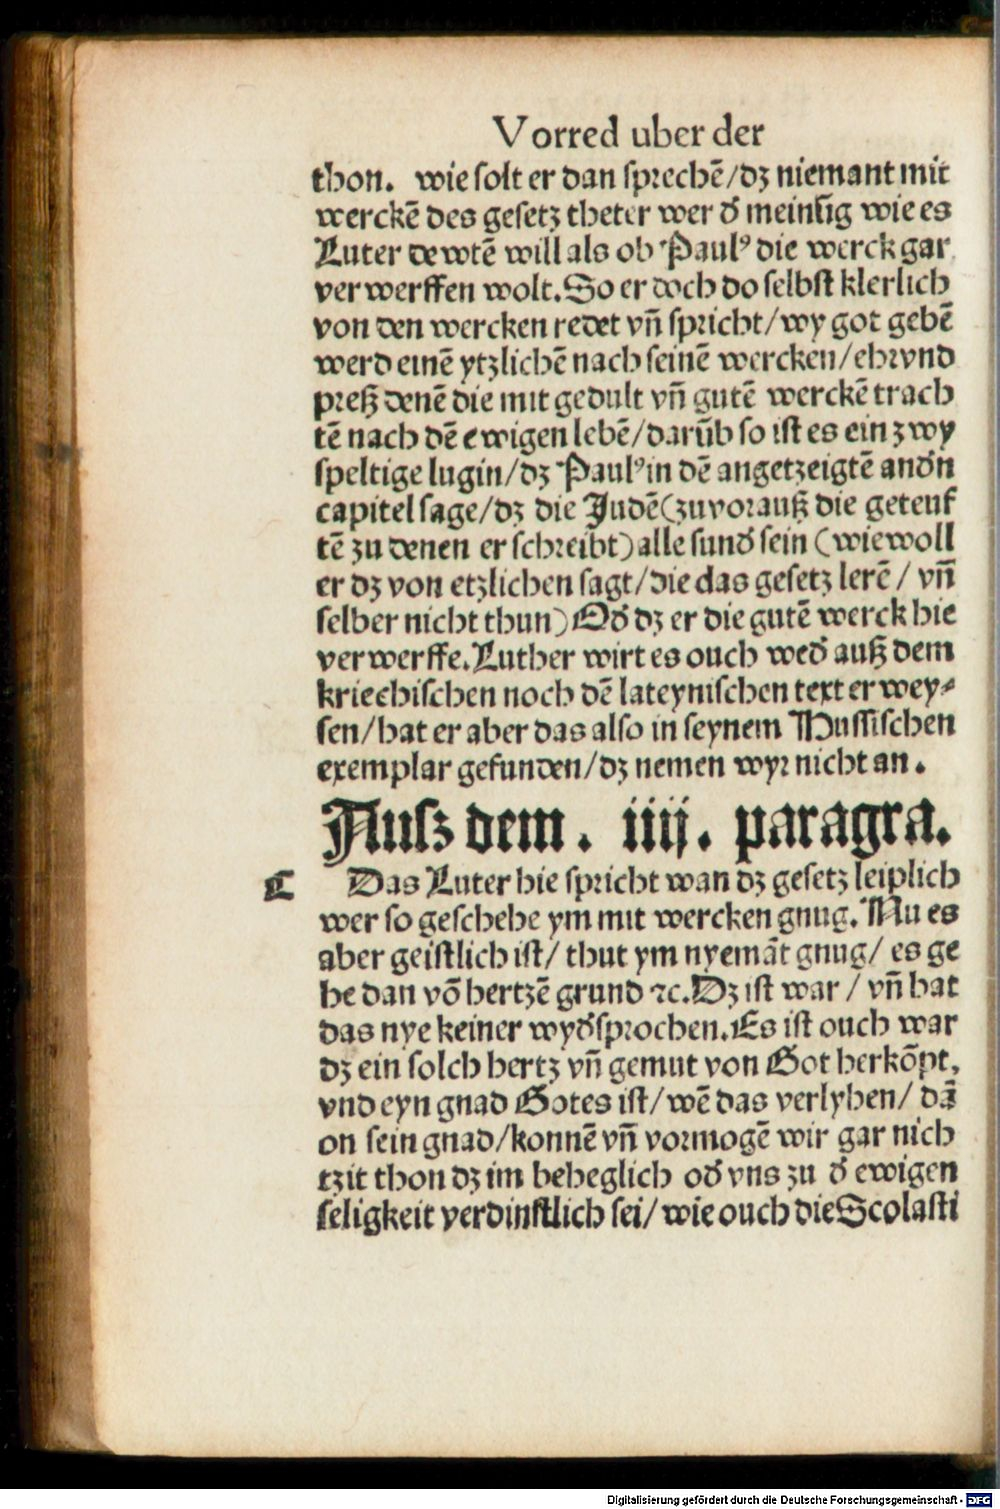 Vorred uber der
thon. wie solt er dan sprechē/dz niemant mit
werckē des gesetz theter wer d̕ meinūg wie es
Luter dewtē will als ob Paulꝰ die werck gar
verwerffen wolt. So er doch do selbst klerlich
von den wercken redet vn̄ spricht/wy got gebē
werd einē ytzlichē nach seinē wercken/ehr vnd
preß denē die mit gedult vn̄ gutē werckē trach
tē nach dē ewigen lebē/darūb so ist es ein zwy
speltige lugin/dz Paulꝰ in dē angetzeigtē and̕n
capitel sage/dz die Judē (zuvorauß die geteuf
tē zu denen er schreibt) alle sund̕ sein (wiewoll
er dz von etzlichen sagt/die das gesetz lerē / vn̄
selber nicht thun) Od̕ dz er die gutē werck hie
verwerffe. Luther wirt es ouch wed̕ auß dem
kriechischen noch dē lateynischen text erwey⸗
sen/hat er aber das also in seynem Hussischen
exemplar gefunden/dz nemen wyr nicht an.
Ausz dem. iiij. paragra.
⁋ Das Luter hie spricht wan dz gesetz leiplich
wer so geschehe ym mit wercken gnug. Nu es
aber geistlich ist/ thut ym nyemāt gnug/ es ge
he dan vō hertzē grund ⁊c. Dz ist war / vn̄ hat
das nye keiner wyd̕sprochen. Es ist ouch war
dz ein solch hertz vn̄ gemut von Got herkōpt,
vnd eyn gnad Gotes ist/ wē das verlyhen/ dā
on sein gnad/konnē vn̄ vormogē wir gar nich
tzit thon dz im beheglich od̕ vns zu d̕ ewigen
seligkeit verdinstlich sei/ wie ouch die Scolasti
Digitalisierung gefördert durch die Deutsche Forschungsgemeinschaft - DFG